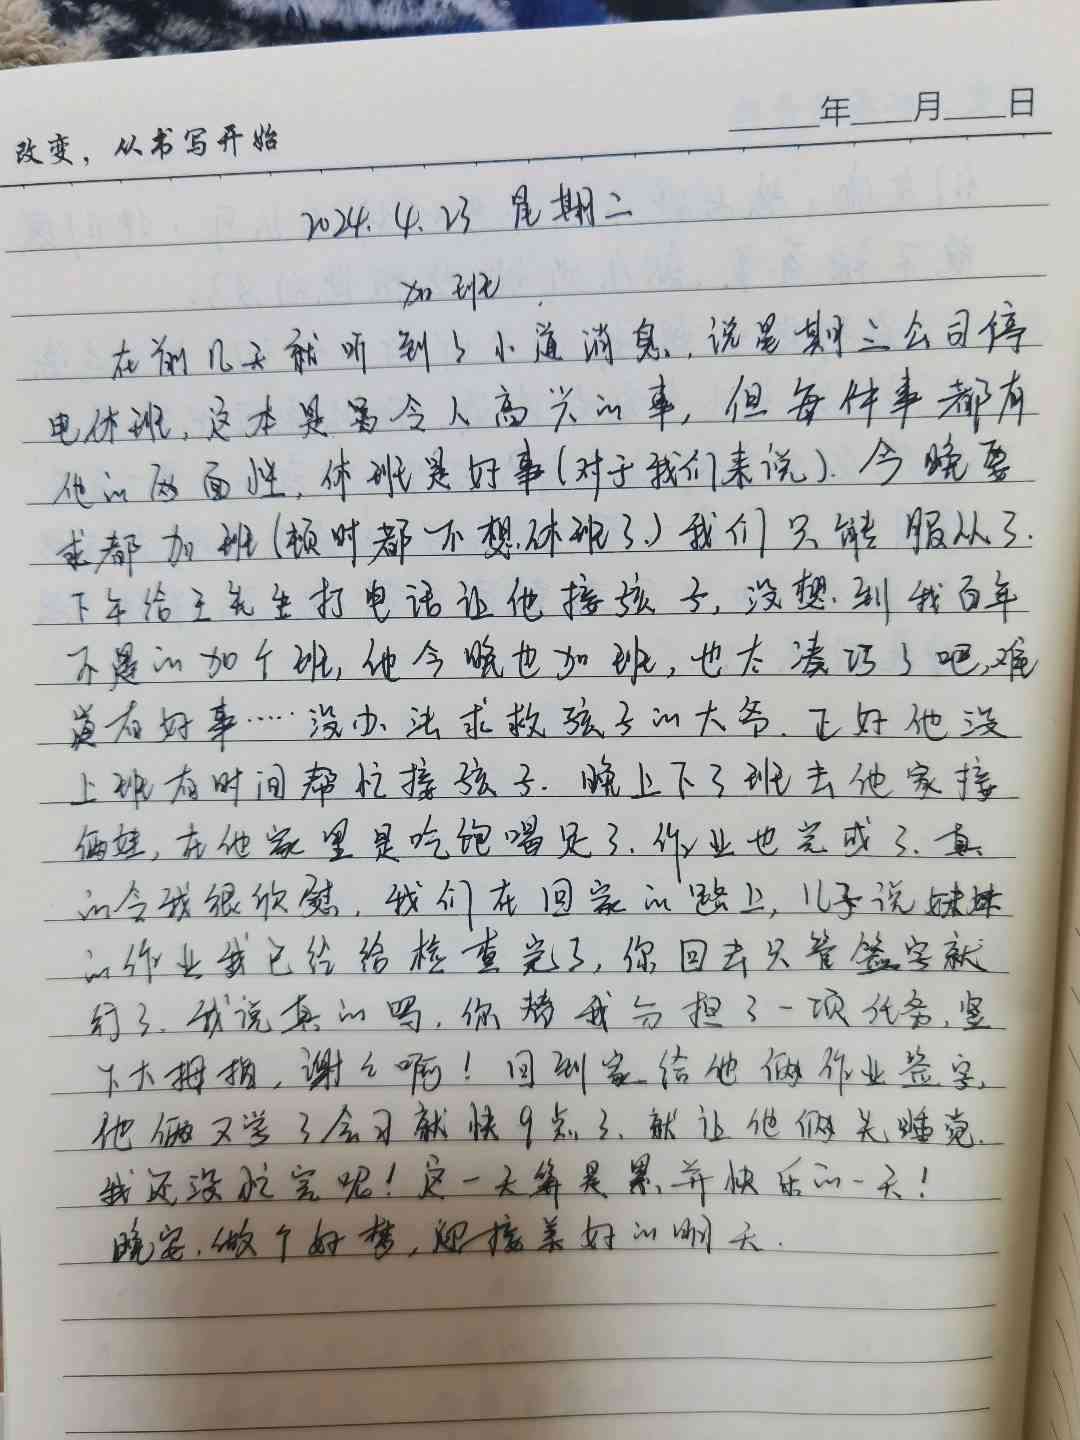 ____年____月____日
改变，从书写开始
2024.4.23 星期二
加班
在前几天就听到了小道消息，说星期三公司停
电休班，这本是冥令人高兴的事，但每件事都有
他的两面性，休班是好事(对于我们来说)．今晚要
求都加班(顿时都不想休班了)我们只能服从了．
下午给王先生打电话让他接孩子，没想到我百年
不遇的加个班，他今晚也加班，也太凑巧了吧，难
道有好事……没办法求救孩子的大爷．正好他没
上班有时间帮忙接孩子．晚上下了班去他家接
俩娃，在他家里是吃饱喝足了．作业也完成了．真
的令我很欣慰．我们在回家的路上，儿子说妹妹
的作业我已给给检查完了，你回去只管签字就
行了．我说真的吗，你替我分担了一项任务，竖
下大拇指，谢谢啊！回到家给他俩作业签字，
他俩又学了会习就快9点了．就让他俩先睡觉．
我还没忙完呢！这一天算是累并快乐的一天！
晚安．做个好梦，迎接美好的明天．